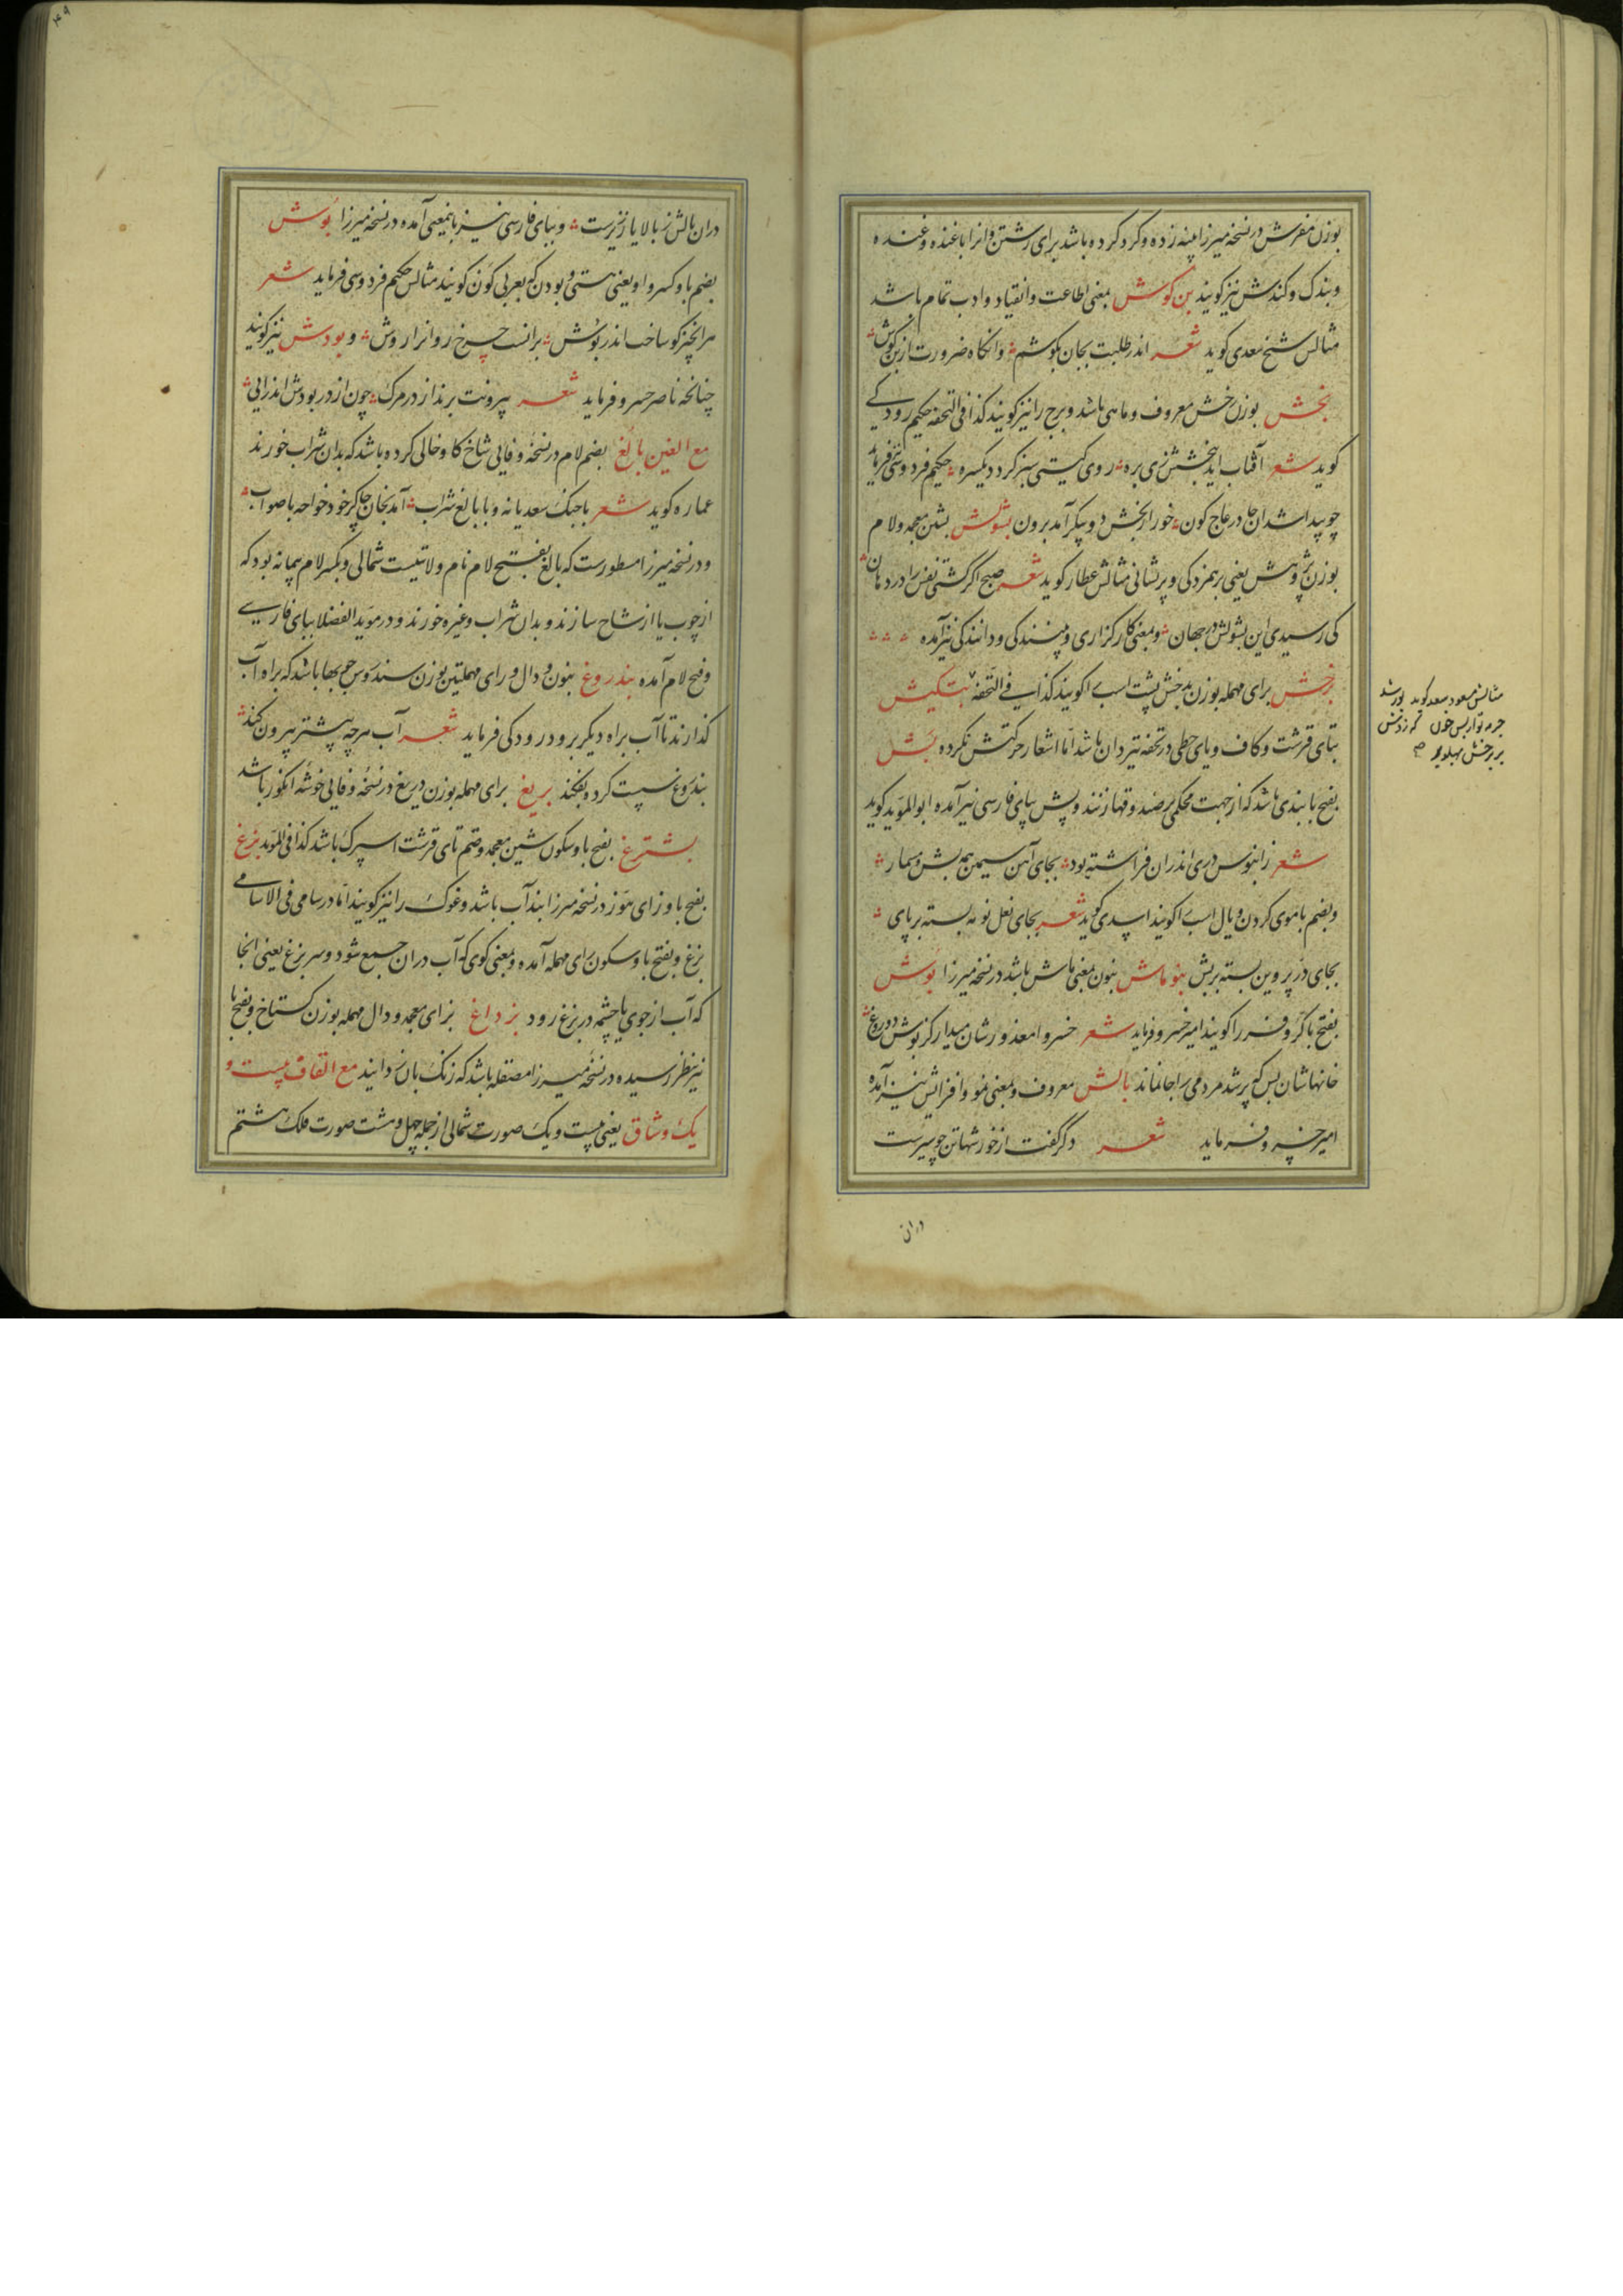 بوزن مفرش در نسخه میرزا پنبه زده و گرد کرده باشد برای رشتن و انرا باغنده و غنده
و بندک و کندش نیز کویند بن کوش بمعنی اطاعت و انقیاد و ادب تمام باشد
مثالس شیخ سعدی کوید شعر اندر طلبت بجان بکوشم وانکاه ضرورت از بن کوش
بخش بوزن رخش معروف و ماهی باشد و برج را نیز کویند کذا فی التحفه حکیم رودکی
کوید شعر آفتاب اید ببخشش زی بره روی کیتی سبز کردد یکسره حکیم فردوسی فرماید
چو پیدا شد ان چادر عاج کون خور از بخش دو پیکر آمد برون بشولش بشین معجمه و لام
بوزن پژوهش یعنی برهمزدکی و پریشانی مثالش عطار کوید شعر صبح اگر کشتی نفس را در دهان
کی رسیدی این بشولش در جهان و بمعنی کارکزاری و بینندکی و دانندکی نیز آمده
برخش برای مهمله بوزن بدخش پشت اسب را کویند کذا فی التحفه بتکیش
بتای قرشت و کاف و یای حطی در تحفه تیردان باشد اما اشعار حرکتش نکرده بش
بفتح با بندی باشد که از جهت محکمی بر صندوقها زنند و پش ببای فارسی نیز آمده ابو المؤید کوید
شعر ز آبنوس دری اندران فراشته بود بجای آهن سیمین همه بش و مسمار
و بضم با موی کردن و یال اسب را کویند اسدی کوید شعر بجای نعل نو مه بسته بر پای
بجای در پروین بسته بر بش بنو ماش بنون بمعنی ماش باشد در نسخه میرزا بوش
بفتح با کر و فر را کویند امیر خسرو فرماید شعر خسروا معذور شان میدار کز بوش دروغ
خانهاشان بس که پر شد مردمی را جا نماند بالش معروف و بمعنی نمو و افزایش نیز آمده
امیر خسرو فرماید شعر دکر کفت از خورشهاتن چو سیرست
مثالش مسعود سعد کوید
دران
دران بالش ز بالا یا ز زیرست و ببای فارسی نیز باینمعنی آمده در نسخه میرزا بوش
بضم با و کسر واو یعنی هستی و بودن که بعربی کون کویند مثالس حکیم فردوسی فرماید شعر
هر انچیز کو ساخت اندر بوش بر انست چرخ روانرا روش و بودش نیز کویند
چنانچه ناصر خسرو فرماید شعر بیرونت برند از در مرک چون از در بودش اندر ایی
مع الغین بالغ بضم لام در نسخه وفایی شاخ کاو خالی کرده باشد که بدان شراب خورند
عماره کوید شعر با چنک سعدیانه و با بالغ شراب آمد بخان چاکر خود خواجه با صواب
و در نسخه میرزا مسطورست که بالغ بفتح لام نام ولایتیست شمالی و بکسر لام پیمانه بود که
از چوب یا از شاخ سازند و بدان شراب و غیره خورند و در موید الفضلا ببای فارسی
و فتح لام آمده بندروغ بنون و دال و رای مهملتین بوزن سندروس چوبها باشد که براه آب
کذارند تا آب براه دیگر برود رودکی فرماید شعر آب هر چه بیشتر بیرون کند
بندروغ سست کرده بفکند بریغ برای مهمله بوزن دریغ در نسخه وفایی خوشه انکور باشد
بشترغ بفتح با و سکون شین معجمه و ضم تای قرشت اسپرک باشد کذا فی المؤید بزغ
بفتح با و زای هوز در نسخه میرزا بند آب باشد و غوک را نیز کویند اما در سامی فی الاسامی
بزغ و بفتح با و سکون رای مهمله آمده و بمعنی کوی که آب دران جمع شود و سر بزغ یعنی انجا
که آب از جوی یا چشمه در بزغ رود بزداغ بزای معجمه و دال مهمله بوزن کستاخ و بفتح با
نیز بنظر رسیده در نسخه میرزا مصقله باشد که زنک بان زدایند مع القاف بیست و
یک وشاق یعنی بیست و یک صورت شمالی از جمله چهل و هشت صورت فلک هشتم